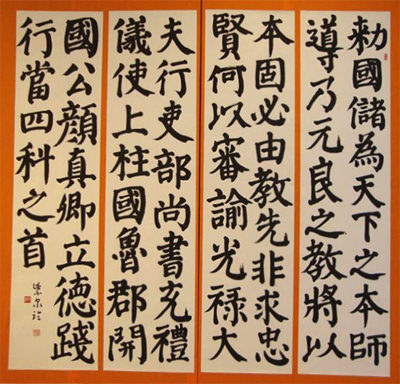 勅國儲為天下之本師
導乃元良之教將以
本固必由教先非求忠
賢何以審諭光祿大
夫行吏部尚書充禮
儀使上柱國魯郡開
國公顏真卿立德踐
行當四科之首